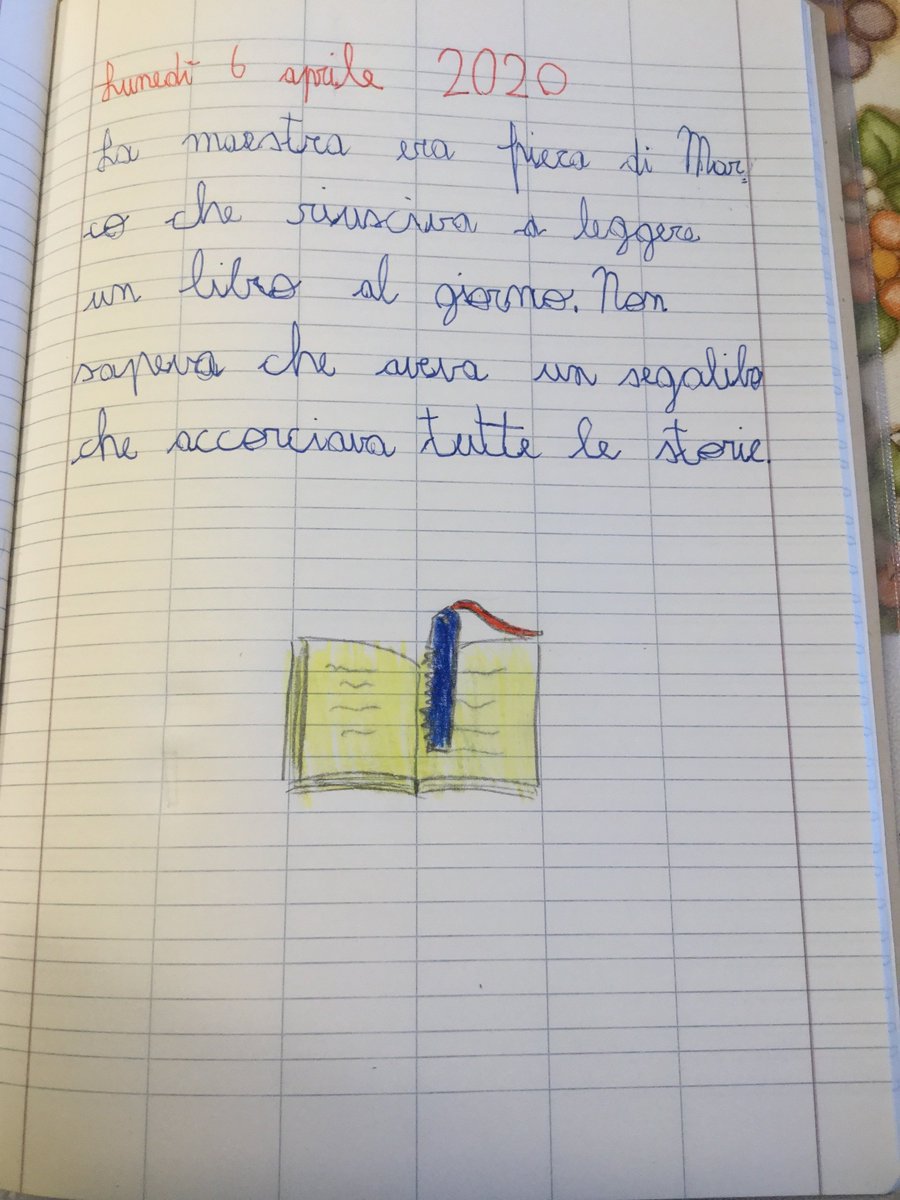 Lunedì 6 aprile 2020
La maestra era fiera di Mar
co che riusciva a leggere
un libro al giorno. Non
sapeva che aveva un segalibo
che accorciava tutte le storie.